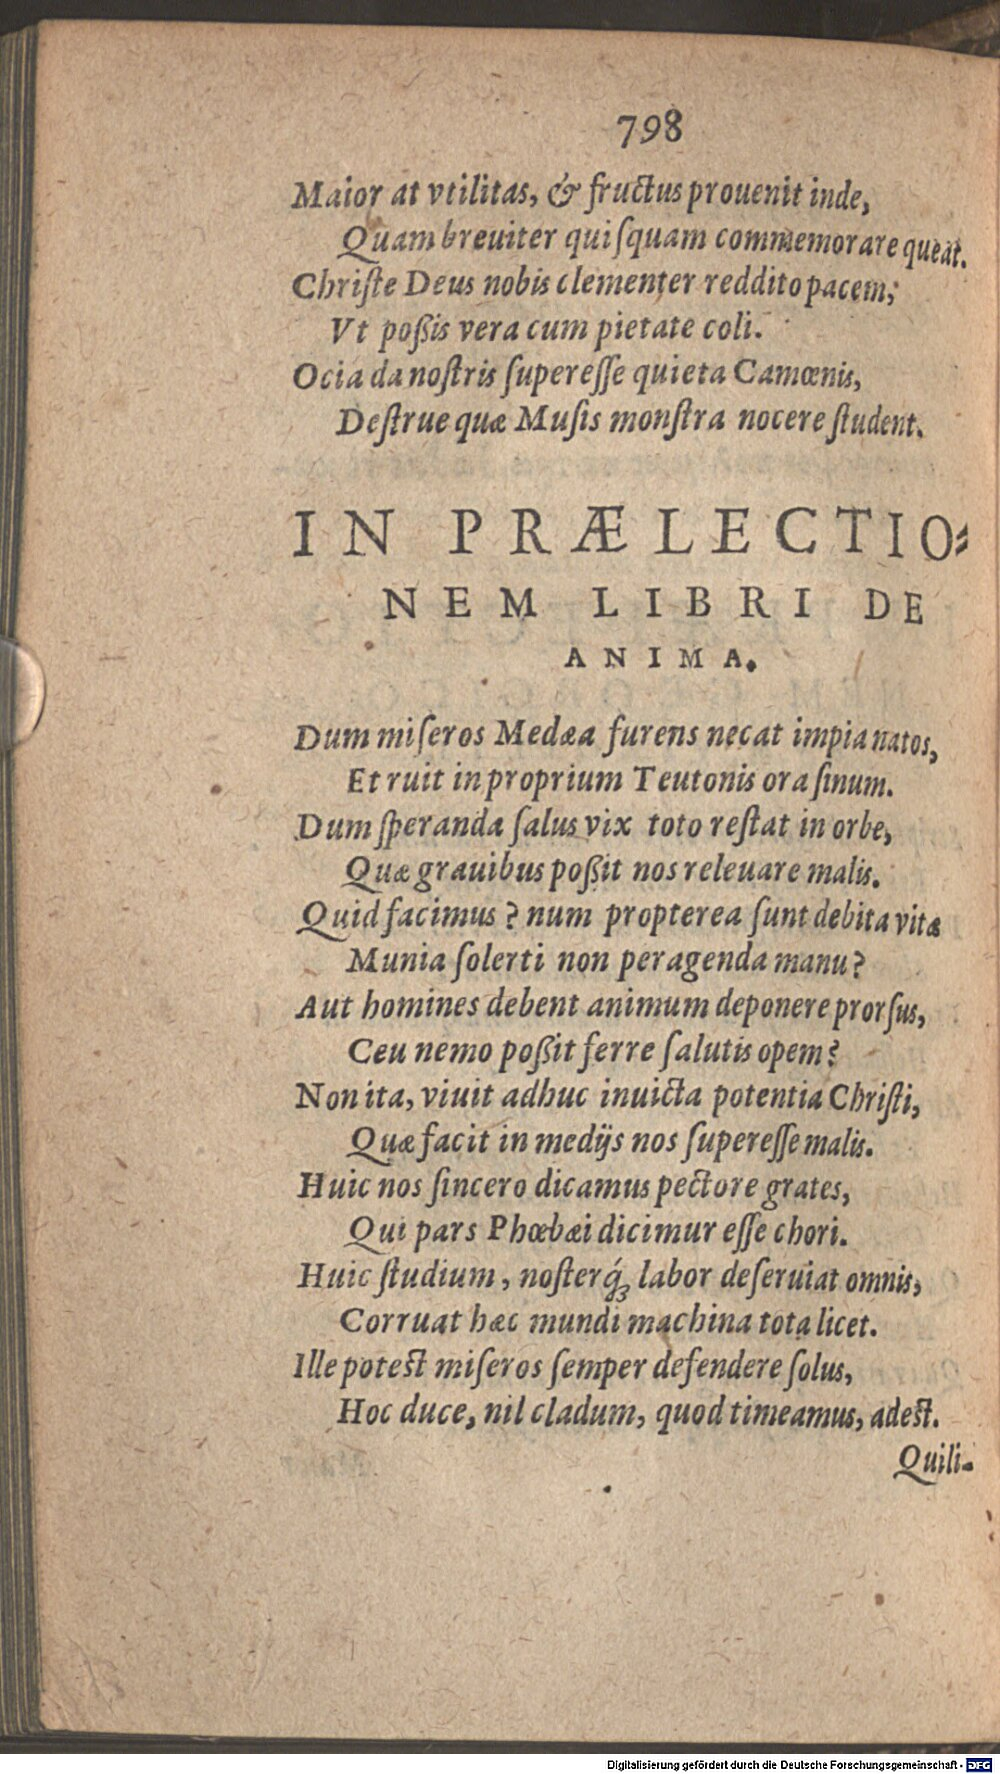 798
Maior at vtilitas, & fructus prouenit inde,
Quam breuiter quiſquam commemorare queat.
Chriſte Deus nobis clementer reddito pacem,
Vt poßis vera cum pietate coli.
Ocia da noſtris ſupereſſe quieta Camœnis,
Deſtrue quæ Muſis monſtra nocere ſtudent.
IN PRÆLECTIO⸗
NEM LIBRI DE
ANIMA.
Dum miſeros Medæa furens necat impia natos,
Et ruit in proprium Teutonis ora ſinum.
Dum ſperanda ſalus vix toto reſtat in orbe,
Quæ grauibus poßit nos releuare malis.
Quid facimus? num propterea ſunt debita vitæ
Munia ſolerti non peragenda manu?
Aut homines debent animum deponere prorſus,
Ceu nemo poßit ferre ſalutis opem?
Non ita, viuit adhuc inuicta potentia Chriſti,
Quæ facit in medijs nos ſupereſſe malis.
Huic nos ſincero dicamus pectore grates,
Qui pars Phœbæi dicimur eſſe chori.
Huic ſtudium, noſterq́ꝫ labor deſeruiat omnis,
Corruat hæc mundi machina tota licet.
Ille poteſt miſeros ſemper defendere ſolus,
Hoc duce, nil cladum, quod timeamus, adeſt.
Quili-
Digitalisierung gefördert durch die Deutsche Forschungsgemeinschaft - DFG